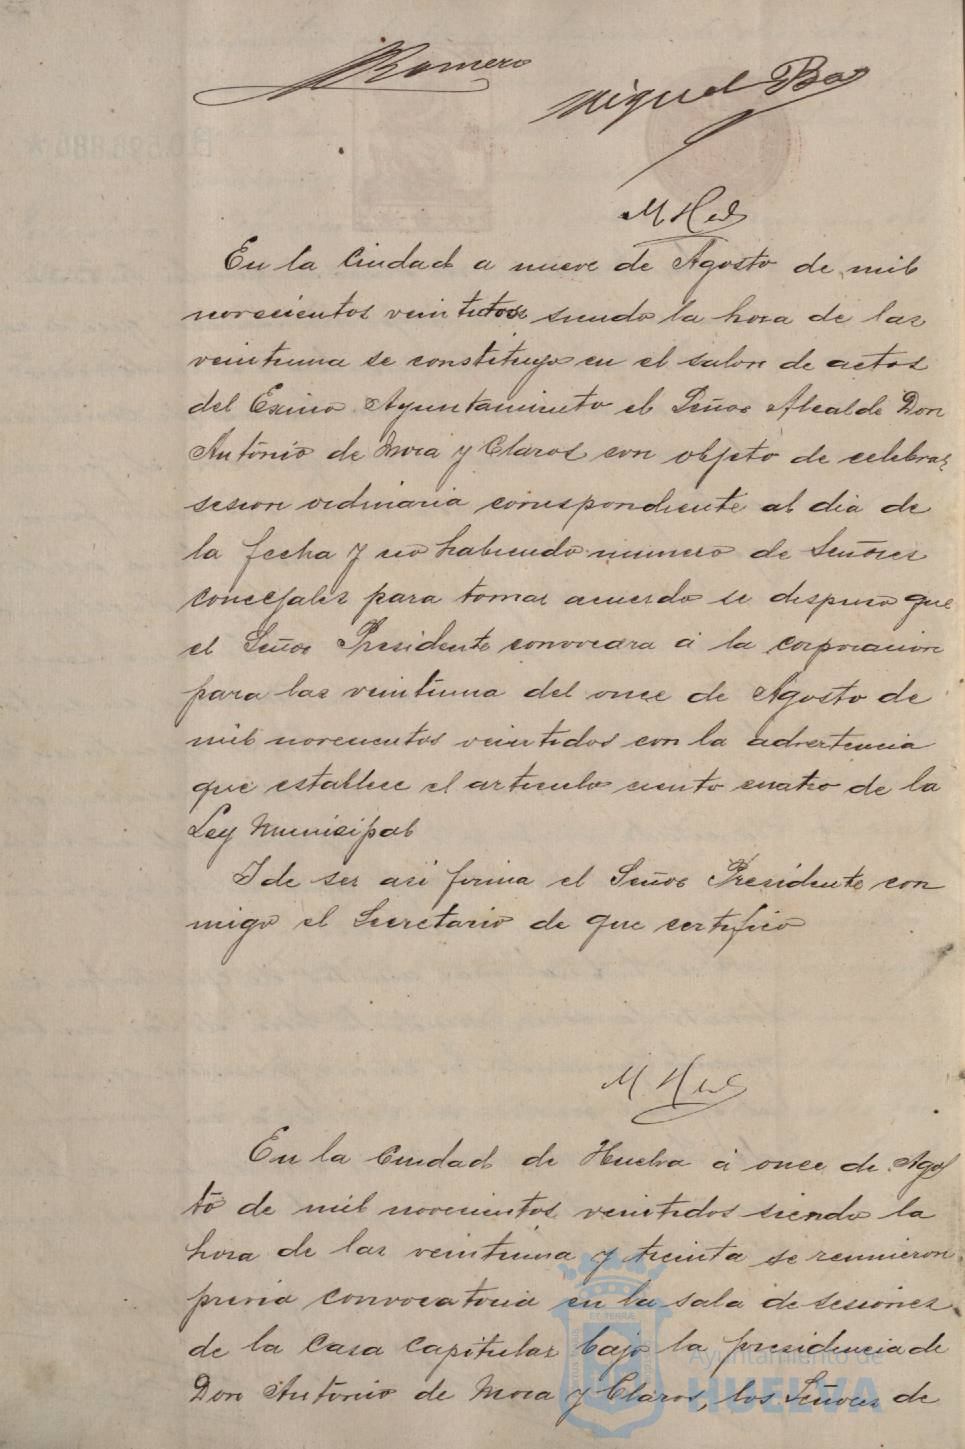 Romero
Miguel Bas
En la Ciudad a nueve de Agosto de mil
novecientos veintidos siendo la hora de las
veintiuna se constituyo en el salon de actos
del Excmo Ayuntamiento el Señor Alcalde Don
Antonio de Mora y Claros con objeto de celebrar
sesion ordinaria correspondiente al dia de
la fecha y no habiendo numero de Señores
concejales para tomar acuerdo se dispuso que
el Señor Presidente convocara á la corporacion
para las veintiuna del once de Agosto de
mil novecientos veintidos con la advertencia
que establece el articulo ciento cuatro de la
Ley Municipal
I de ser asi firma el Señor Presidente con
migo el Secretario de que certifico
En la Ciudad de Huelva á once de Agos
to de mil novecientos veintidos siendo la
hora de las veintiuna y treinta se reunieron
previa convocatoria en la sala de sesiones
de la Casa Capitular bajo la presidencia de
Don Antonio de Mora y Claros, los Señores de
Ayuntamiento de
HUELVA